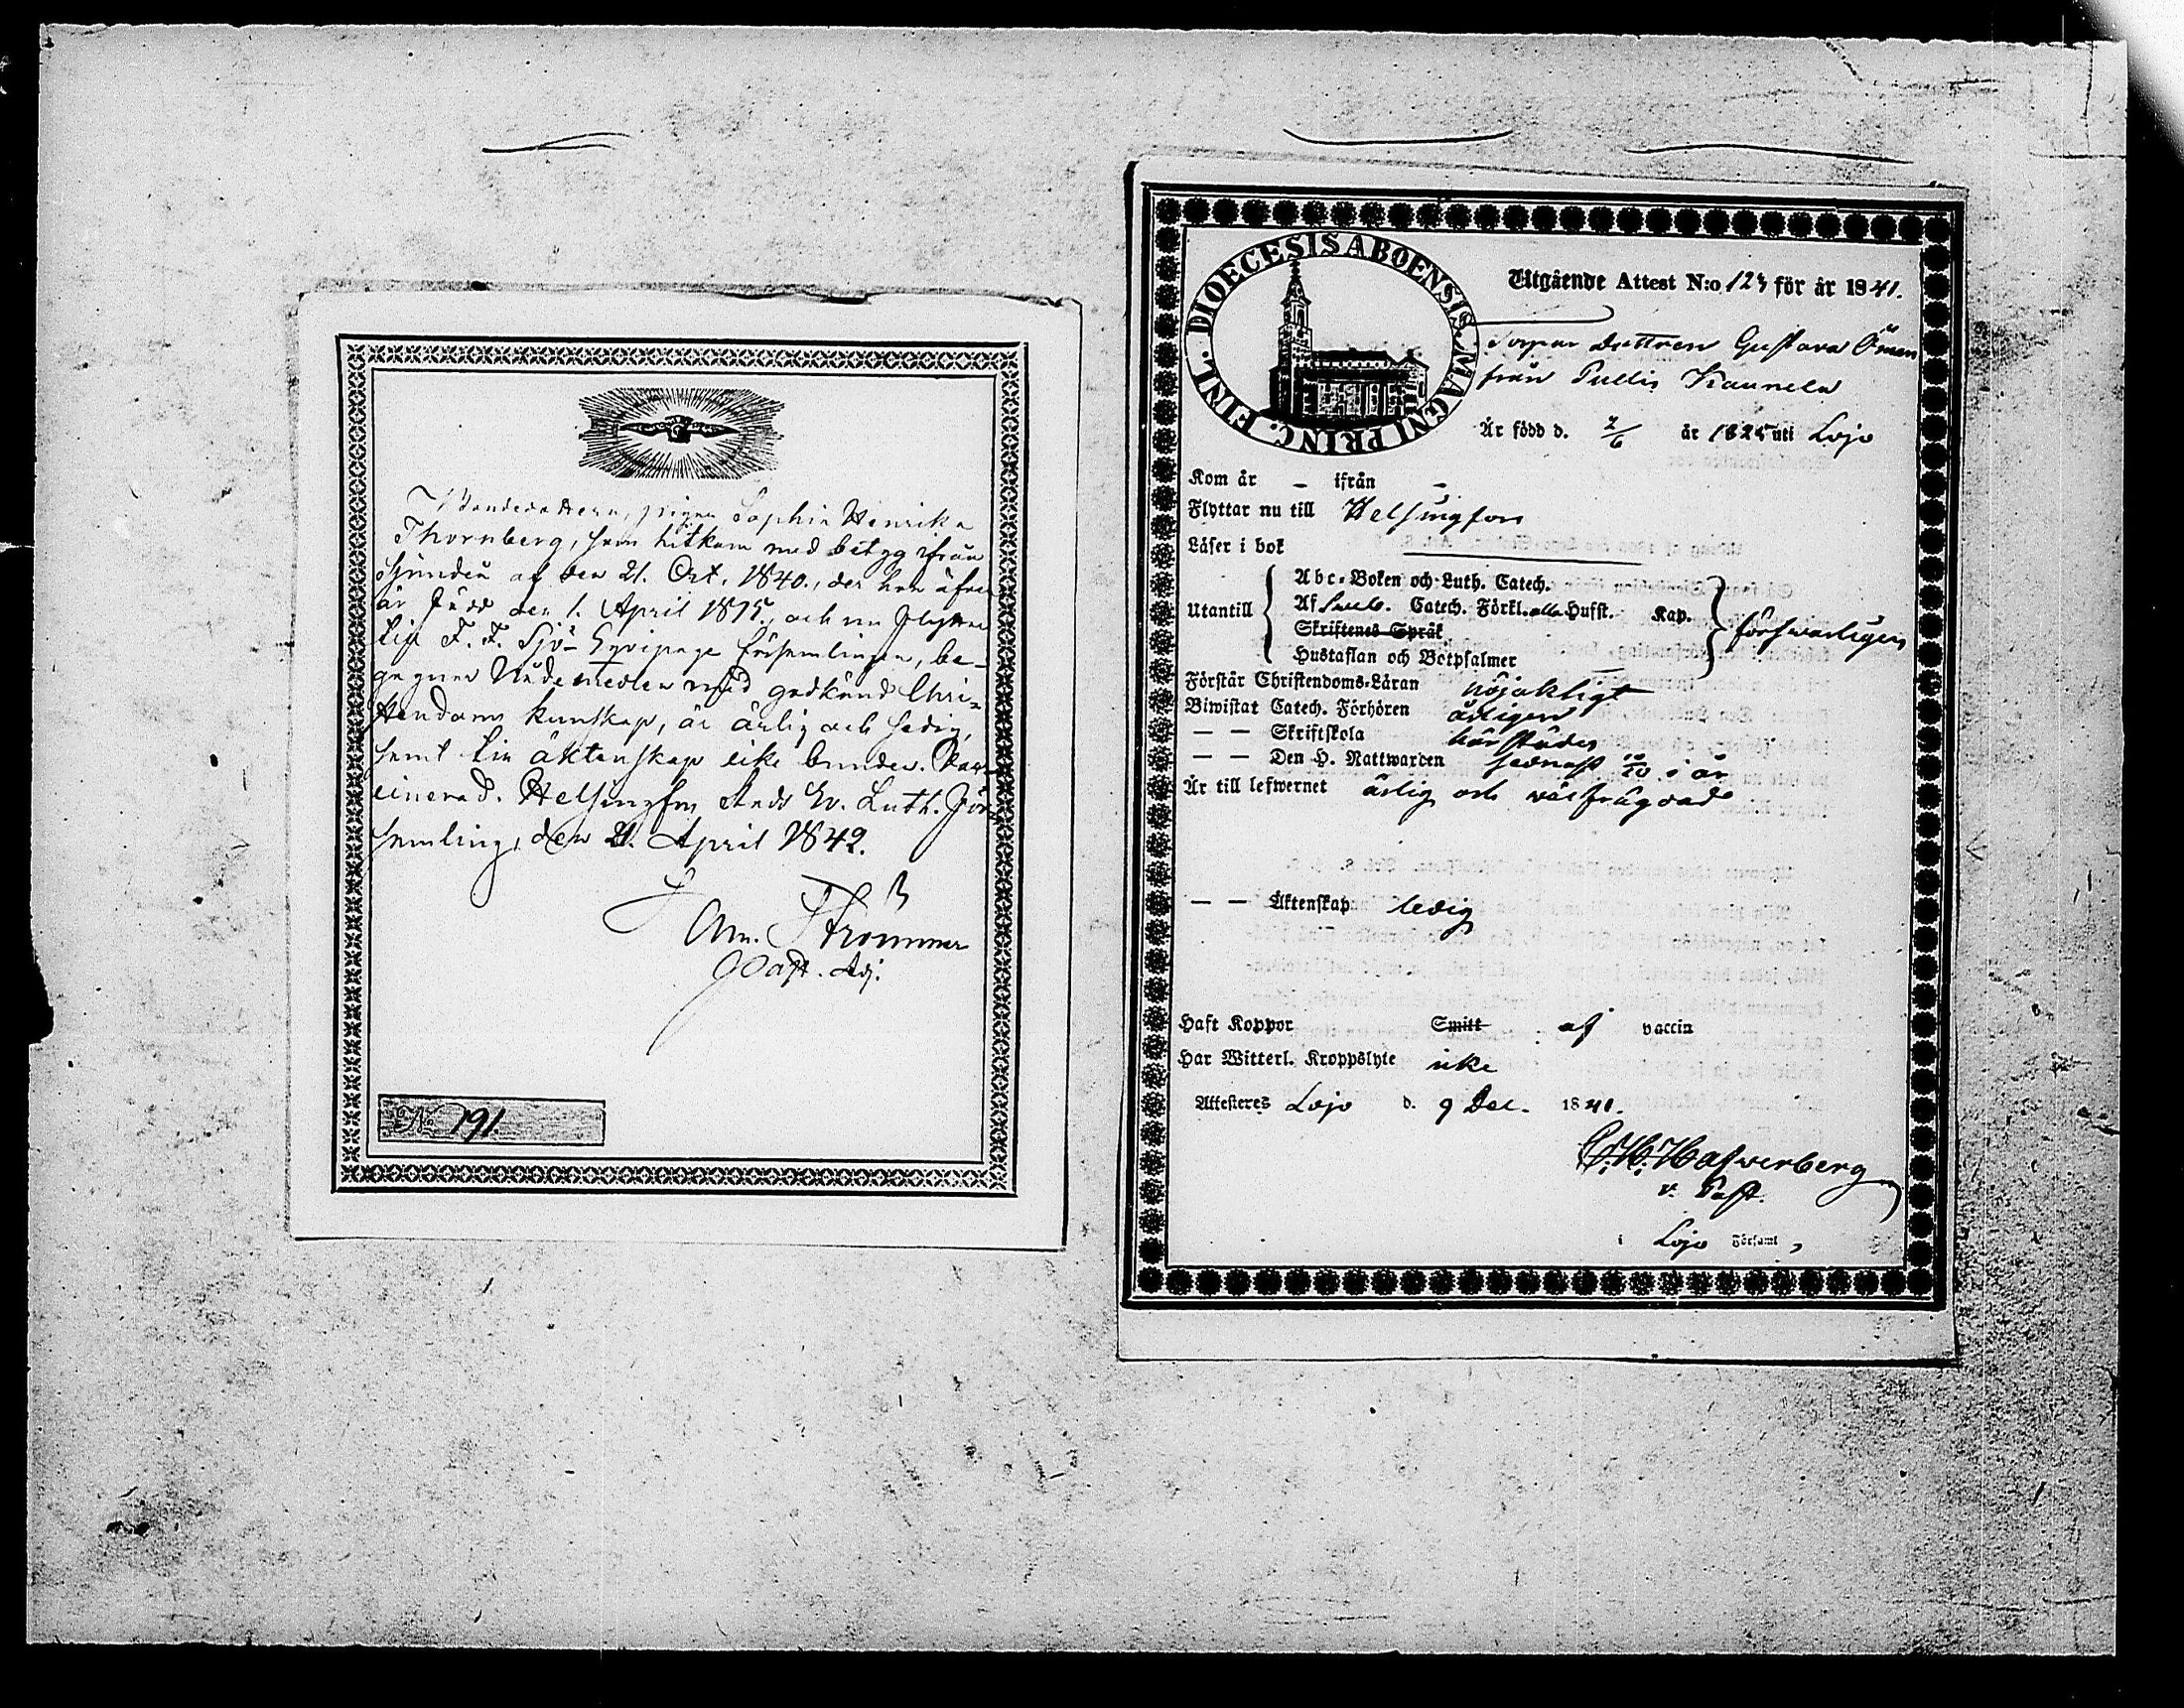 Bondedottern, pigan Sophia Henrika
Thornberg, som hitkom med betyg ifrån
Sjundeå af den 21. Oct. 1840., der hon äfven
är född den 1. April 1815., och nu flyttar
till F. F. Sjö-Equipage församlingen, be-
gagnar Nådemedlen med godkänd Chri-
stendoms kunskap, är ärlig och sedig,
samt till äktenskap icke bunden.
Helsingfors Stads Ev. Luth. För-
samling, den 21. April 1842.
Am. Strömmer
Past. Adj.
No 191.
DIOECESIS ABOENSIS. MAGNI PRINC. FINL.
Utgående Attest N:o 123 för år 1841.
Torpar dottren Gustava
från Pullis Kaunela
Är född d. 2/6 år 1825 uti Lojo
Kom år - ifrån -
Flyttar nu till Helsingfors
Läser i bok
Utantill
Abc-Boken och Luth. Catech.
Af Sveb. Catech. Förkl. alla Hufst. Kap.
Skriftenes Språk
Hustaflan och Botpsalmer
försvarligen
Förstår Christendoms-Läran nöjaktigt
Biwistat Catech. Förhören årligen
— — Skriftskola härstädes
— — Den H. Nattwarden sednast 10/10 i år
Är till lefwernet ärlig och välfrägdad
— — Äktenskap ledig
Haft Koppor Smitt af vaccin
Har Witterl. Kroppslyte icke
Attesteres Lojo d. 9 Dec. 1841.
C. H. Hafverberg
v. Past.
i Lojo Församl